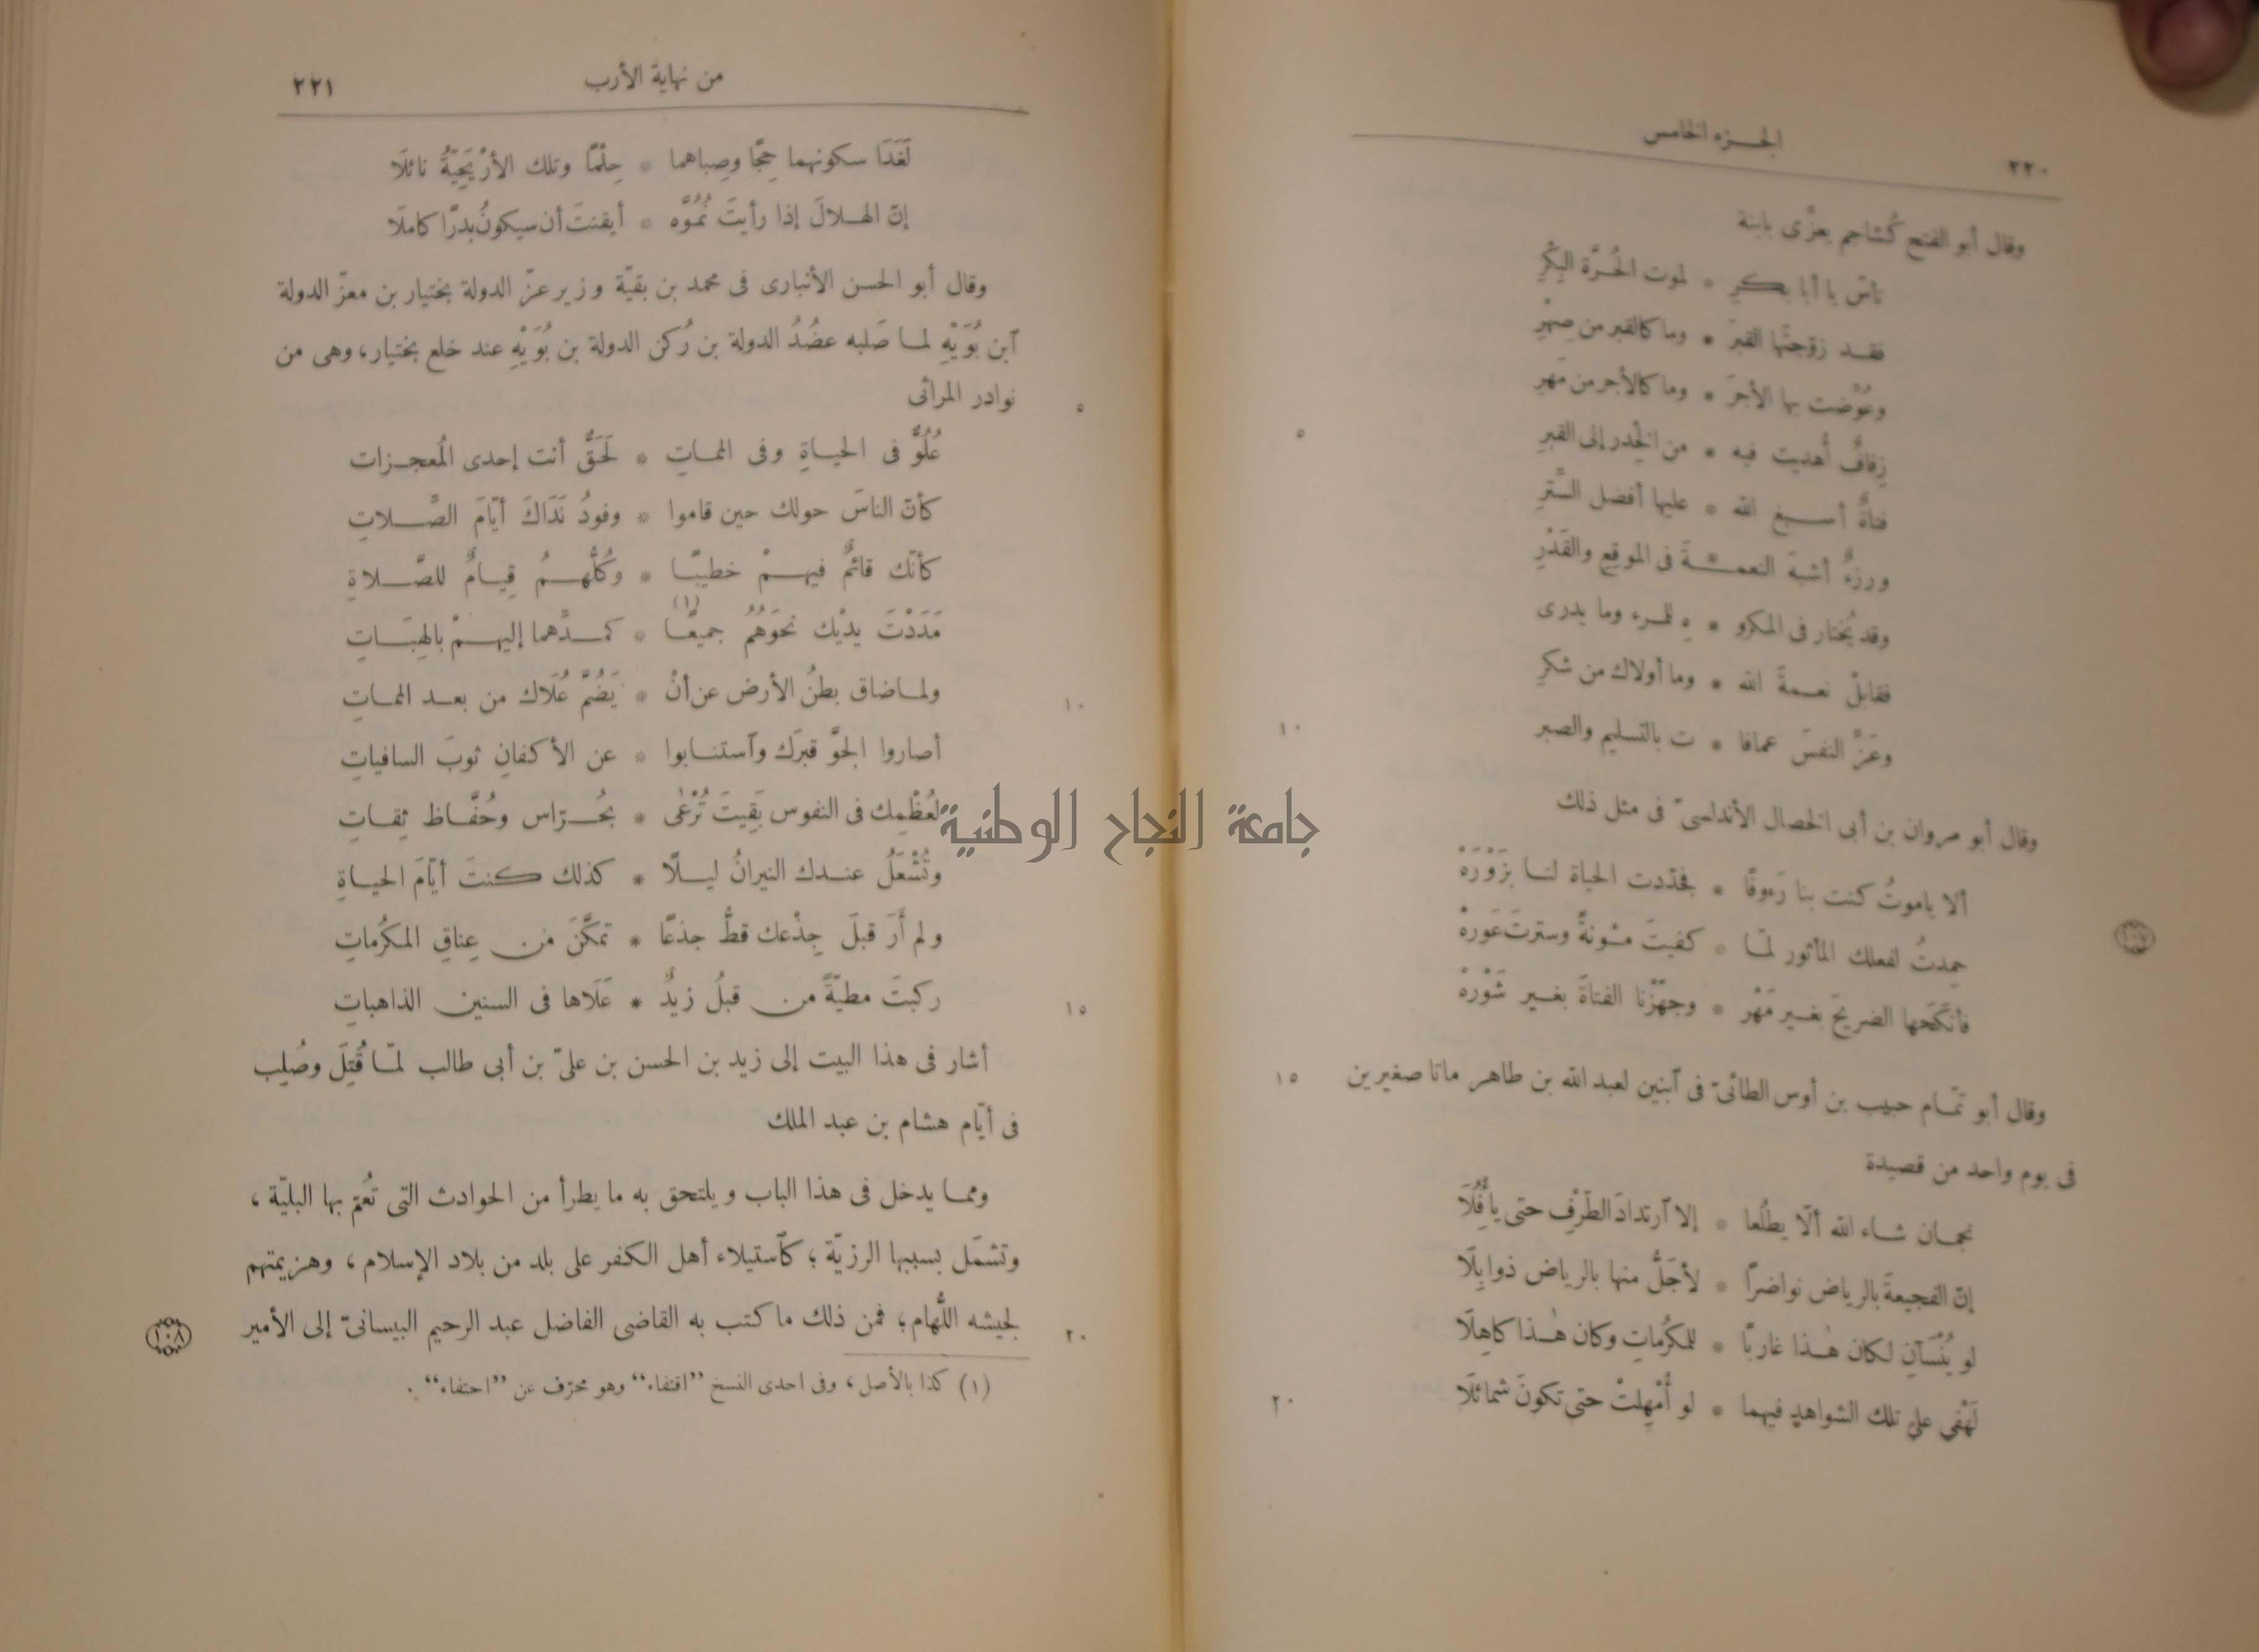 ٢٢٠
الجزء الخامس
وقال أبو الفتح كُشاجم يعزّى بابنة
تأسّ يا أبا بكرِ * لموت الحُرّة البِكْرِ
فقد زوّجتَها القبرَ * وما كالقبر من صِهْرِ
وعُوّضت بها الأجرَ * وما كالأجر من مَهرِ
زِفافٌ أُهديت فيه * من الخِدر إلى القبرِ
٥
فتاةٌ أسبغ الله * عليها أفضل السَّترِ
ورزءٌ أشبهَ النعمــةَ فى الموقع والقَدْرِ
وقد يُختار فى المكرو * هِ للمرء وما يدرى
فقابلْ نعمةَ الله * وما أولاك من شكرِ
وعَزِّ النفسَ عمافا * ت بالتسليم والصبر
١٠
وقال أبو مروان بن أبى الخصال الأندلسىّ فى مثل ذلك
ألا ياموتُ كنت بنا رَءوفًا * فجدّدت الحياة لنا بزَوْرَهْ
حمِدتُ لفعلك المأثور لمّا * كفيتَ مئونةً وسترتَ عَورهْ
فأنكَحَها الضريحَ بغير مَهْر * وجهّزْنا الفتاةَ بغير شَوْرهْ
وقال أبو تمّام حبيب بن أوس الطائىّ فى آبنين لعبد الله بن طاهر ماتا صغيرين
١٥
فى يوم واحد من قصيدة
نجمان شاء الله ألّا يطلُعا * إلا آرتدادَ الطَّرْفِ حتى يأفُلَا
إنّ الفجيعةَ بالرياض نواضرًا * لأجَلُّ منها بالرياض ذوابِلَا
لو يُنْسَآنِ لكان هٰذا غاربًا * للمكرُماتِ وكان هٰذا كاهِلَا
لَهْفى على تلك الشواهدِ فيهما * لو أُمْهِلتْ حتى تكونَ شمائلَا
٢٠
من نهاية الأرب
٢٢١
لَغَدَا سكونهما حِجًا وصِباهما * حِلْمًا وتلك الأرْيَحِيّةُ نائلَا
إنّ الهلالَ إذا رأيتَ نُمُوَّه * أيقنتَ أن سيكونُ بدرًا كاملَا
وقال أبو الحسن الأنبارى فى محمد بن بقيّة وزير عزّ الدولة بختيار بن معزّ الدولة
آبن بُوَيْهِ لما صَلبه عضُدُ الدولة بن رُكن الدولة بن بُوَيْهِ عند خلع بختيار، وهى من
نوادر المراثى
٥
عُلُوٌّ فى الحياةِ وفى المماتِ * لَحَقٌّ أنت إحدى المُعجزات
كأنّ الناسَ حولك حين قاموا * وفودُ نَدَاكَ أيّامَ الصِّلاتِ
كأنّك قائمٌ فيهمْ خطيبًا * وكُلُّهمُ قِيامٌ للصَّلاةِ
مَدَدْتَ يدْيك نحوَهُمُ جميعًا (١) * كمدِّهما إليهمْ بالهِبَاتِ
ولما ضاق بطنُ الأرض عن أنْ * يَضُمَّ عُلَاك من بعد المماتِ
١٠
أصاروا الجوَّ قبرَك وآستنابوا * عن الأكفانِ ثوبَ السافياتِ
لعُظْمِك فى النفوس بَقِيتَ تُرْعٰى * بحُرّاس وحُفَّاظ ثِقاتِ
وتُشْعَلُ عندك النيرانُ ليلًا * كذلك كنتَ أيّامَ الحياةِ
ولم أَرَ قبلَ جِذْعك قطُّ جذعًا * تمكَّنَ من عِناقِ المكرُماتِ
ركبتَ مطيّةً من قبلُ زيدٌ * عَلَاها فى السنين الذاهباتِ
١٥
أشار فى هذا البيت إلى زيد بن الحسن بن علىّ بن أبى طالب لمّا قُتِلَ وصُلِب
فى أيّام هشام بن عبد الملك
ومما يدخل فى هذا الباب ويلتحق به ما يطرأ من الحوادث التى تعُمّ بها البليّة،
وتشمَل بسببها الرزيّة؛ كآستيلاء أهل الكفر على بلد من بلاد الإسلام، وهزيمتهم
لجيشه اللُّهام؛ فمن ذلك ما كتب به القاضى الفاضل عبد الرحيم البيسانىّ إلى الأمير
٢٠
١٠٨
(١) كذا بالأصل، وفى احدى النسخ "اقتفاء" وهو محرّف عن "احتفاء".
جامعة النجاح الوطنية